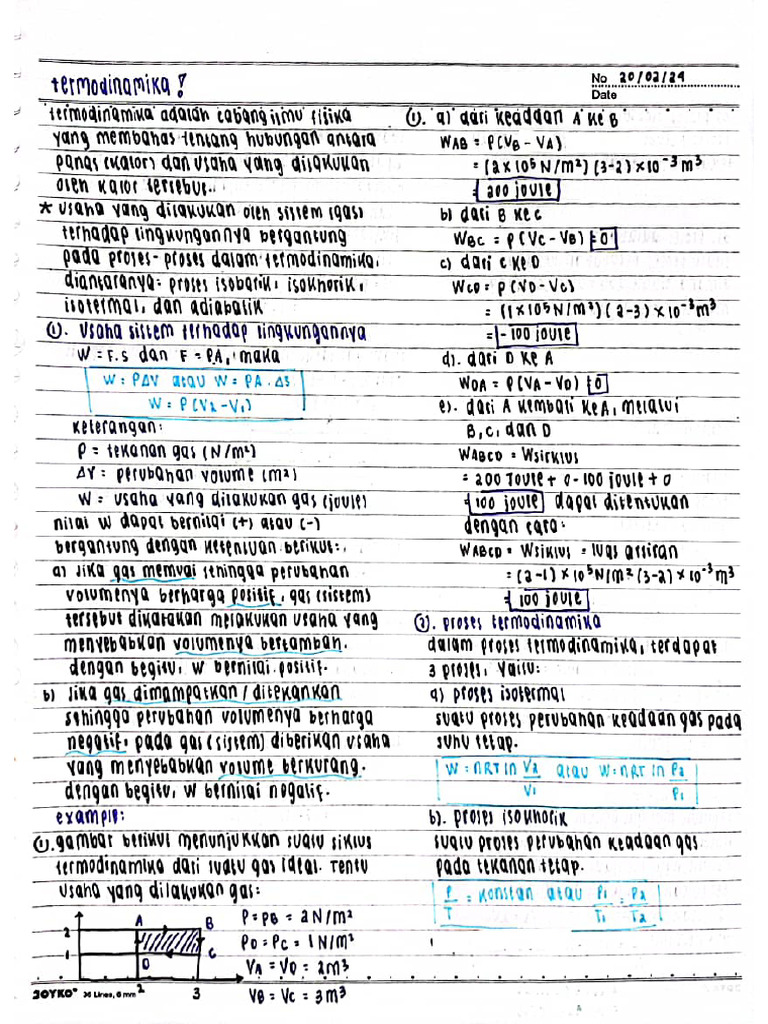 termodinamika!
No 20/02/24
Date
termodinamika adalah cabang ilmu fisika
yang membahas tentang hubungan antara
panas (kalor) dan usaha yang dilakukan
oleh kalor tersebut..
* usaha yang dilakukan oleh sistem (gas)
terhadap lingkungannya bergantung
pada proses-proses dalam termodinamika,
diantaranya: proses isobarik, isokhorik,
isotermal, dan adiabatik
①. Usaha sistem terhadap lingkungannya
W = F.S dan F = PA, maka
W = PΔV atau W = PA . ΔS
W = P(V₂ - V₁)
Keterangan:
P = tekanan gas (N/m²)
ΔV = perubahan volume (m²)
W = usaha yang dilakukan gas (joule)
nilai w dapat bernilai (+) atau (-)
bergantung dengan ketentuan berikut:.
a) Jika gas memuai sehingga perubahan
volumenya berharga positif, gas (sistem)
tersebut dikatakan melakukan usaha yang
menyebabkan volumenya bertambah.
dengan begitu, w bernilai positif.
b) Jika gas dimampatkan / ditekankan
sehingga perubahan volumenya berharga
negatif, pada gas (sistem) diberikan usaha
yang menyebabkan volume berkurang.
dengan begitu, w bernilai negatif.
example:
①. gambar berikut menunjukkan suatu siklus
termodinamika dari suatu gas ideal. Tentu
usaha yang dilakukan gas:
A B
2
1
D C
2 3
P = PB = 2 N/m²
PD = PC = 1 N/m²
VA = VD = 2m³
VB = VC = 3m³
JOYKO 36 Lines, 6 mm
①. a) dari keadaan A ke B
WAB = P(VB - VA)
= (2 x 10⁵ N/m²) (3-2) x 10⁻³ m³
= 200 joule
b) dari B ke C
WBC = P(VC - VB) = 0
c) dari C ke D
WCD = P(VD - VC)
= (1 x 10⁵ N/m²) (2-3) x 10⁻³ m³
= -100 joule
d). dari D ke A
WDA = P(VA - VD) = 0
e). dari A kembali ke A, melalui
B, C, dan D
WABCD = Wsiklus
= 200 Joule + 0 - 100 joule + 0
= 100 joule dapat ditentukan
dengan cara:
WABCD = Wsiklus = luas arsiran
= (2-1) x 10⁵ N/m² (3-2) x 10⁻³ m³
= 100 joule
②. proses termodinamika
dalam proses termodinamika, terdapat
3 proses, yaitu:
a) proses isotermal
suatu proses perubahan keadaan gas pada
suhu tetap.
W = nRT ln V₂/V₁ atau W = nRT ln P₂/P₁
b). proses isokhorik
suatu proses perubahan keadaan gas
pada tekanan tetap.
P/T = konstan atau P₁/T₁ = P₂/T₂